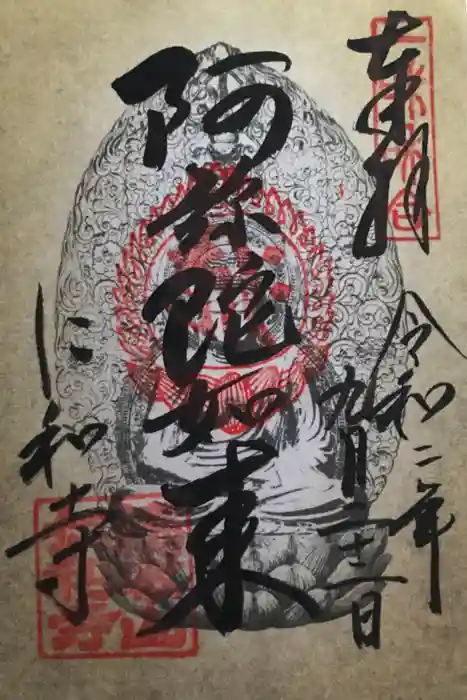 奉拝
令和二年
九月二十一日
阿弥陀如来
仁和寺